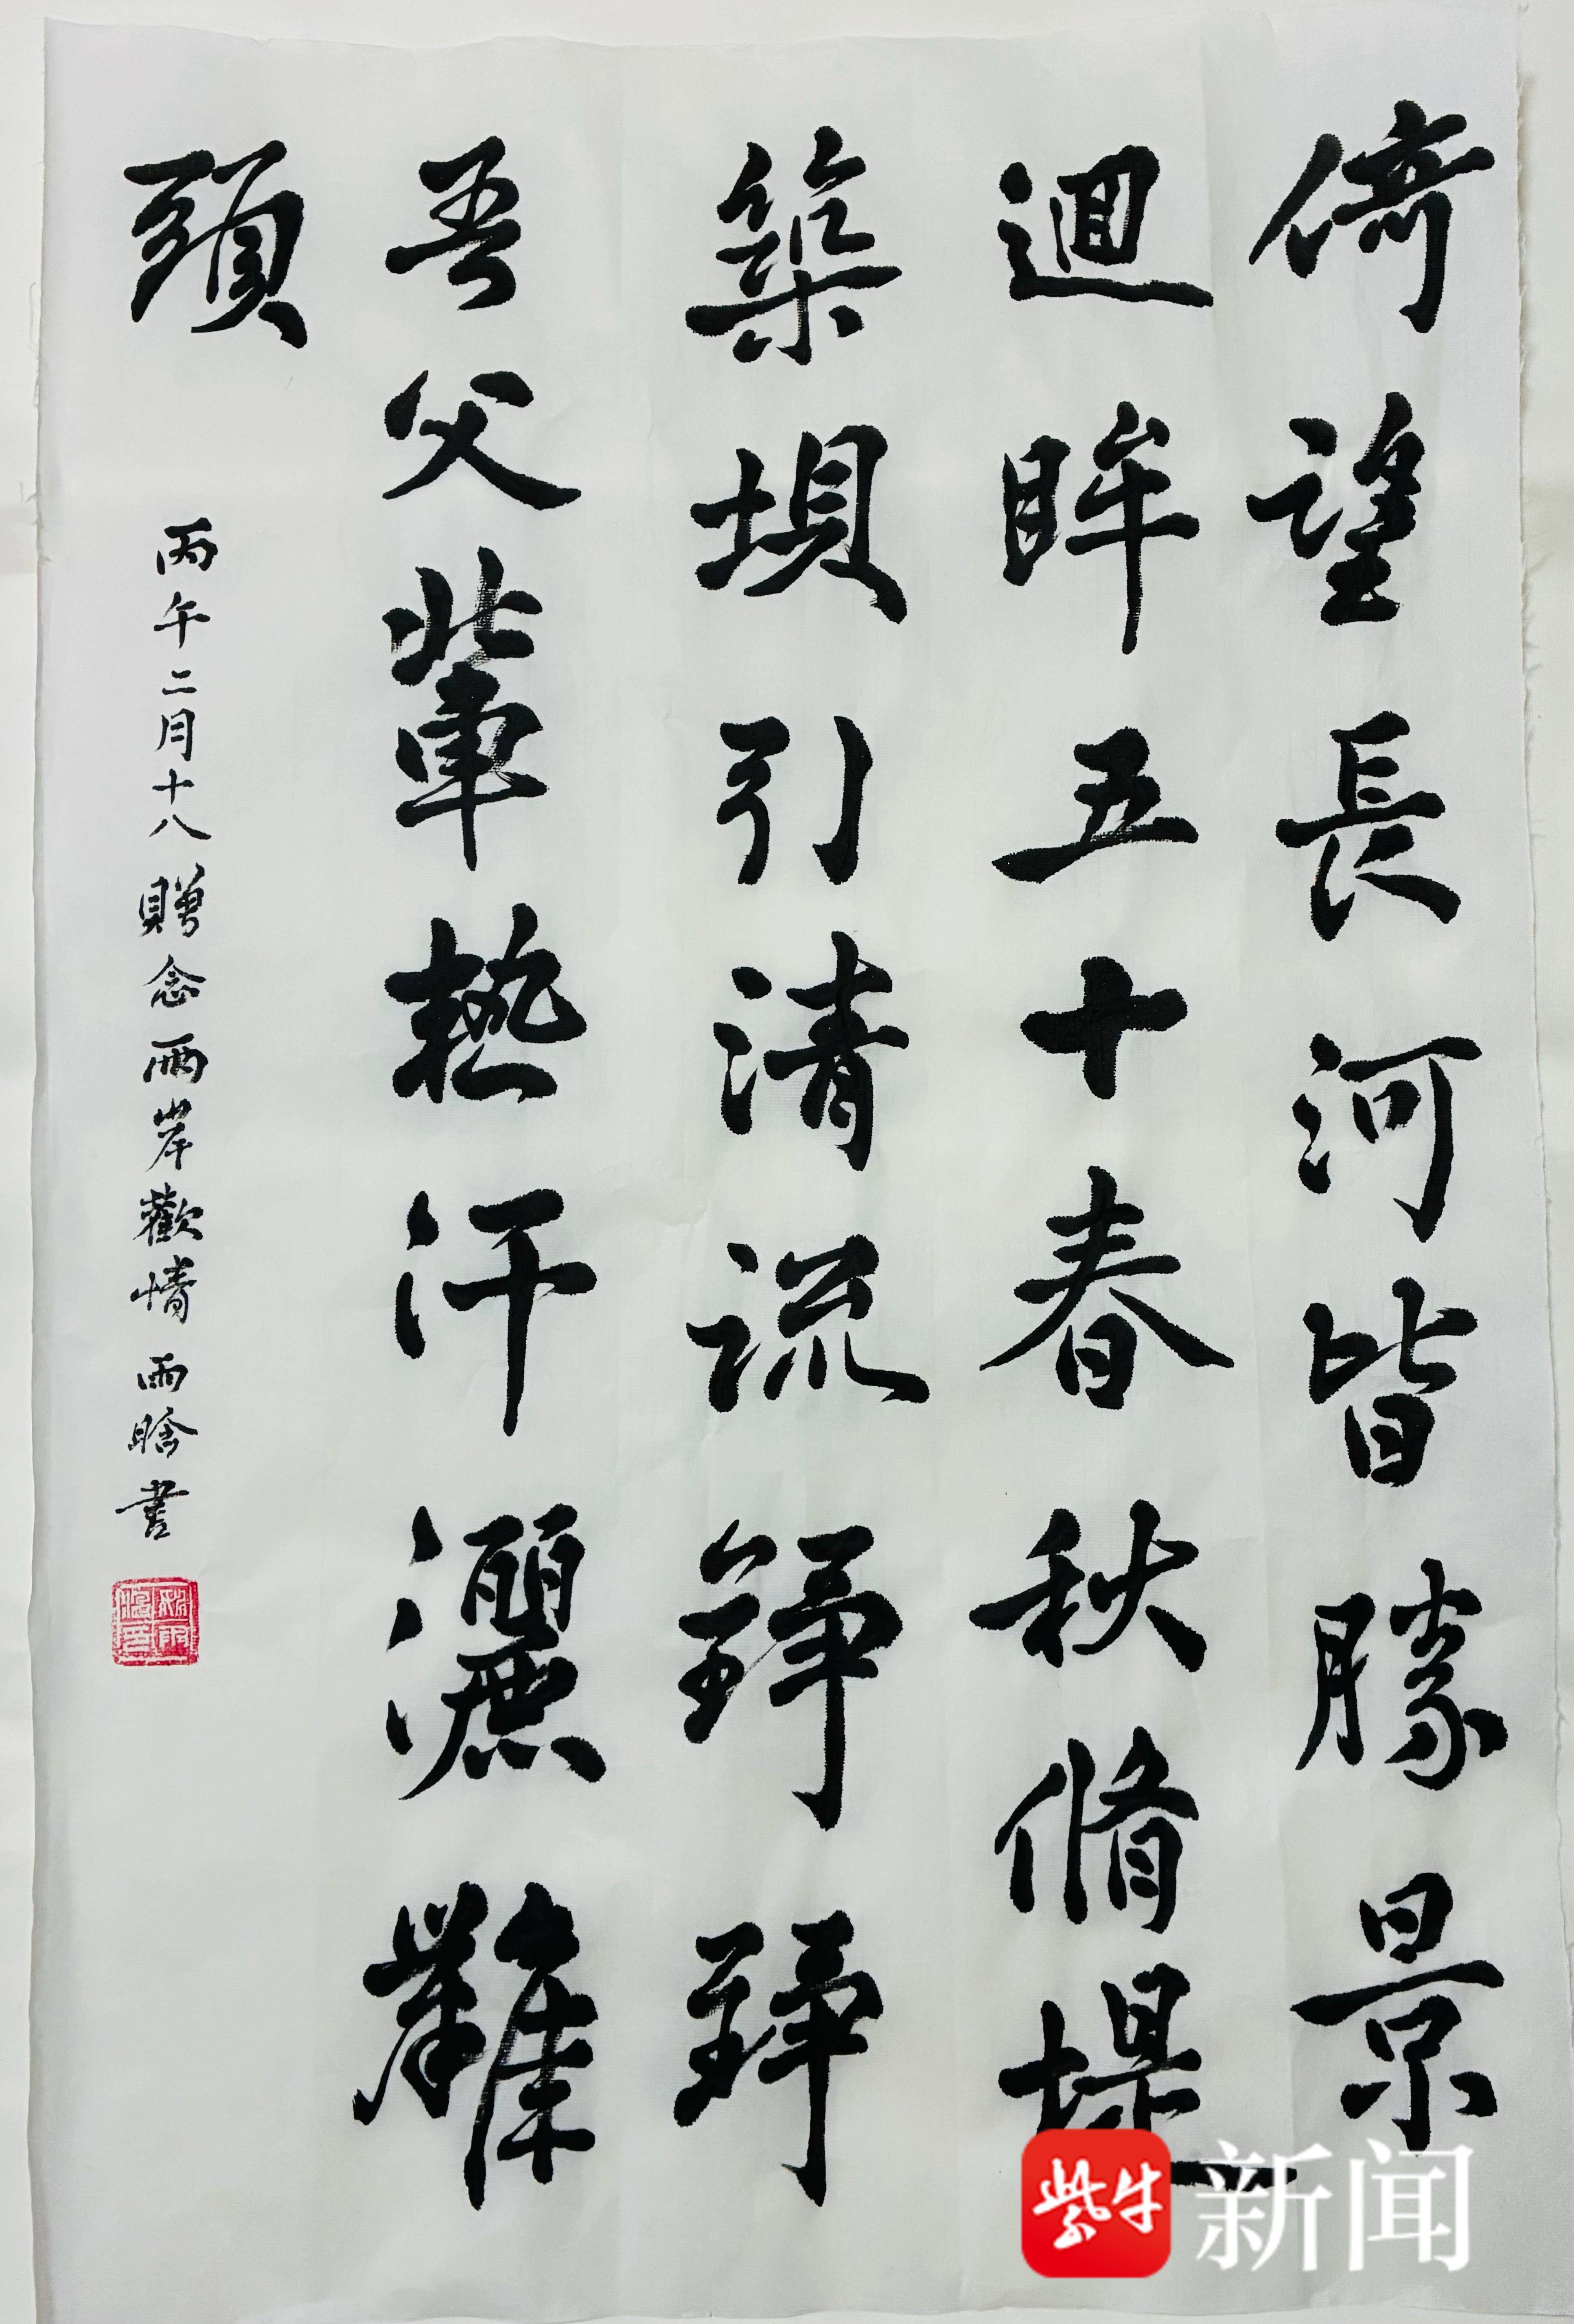 倚望長河皆勝景
迴眸五十春秋脩堤
築垻引清流錚錚
吾父輩熱汗灑灘
頭
丙午二月十八贈念兩岸歡情雨晗書
紫牛新闻